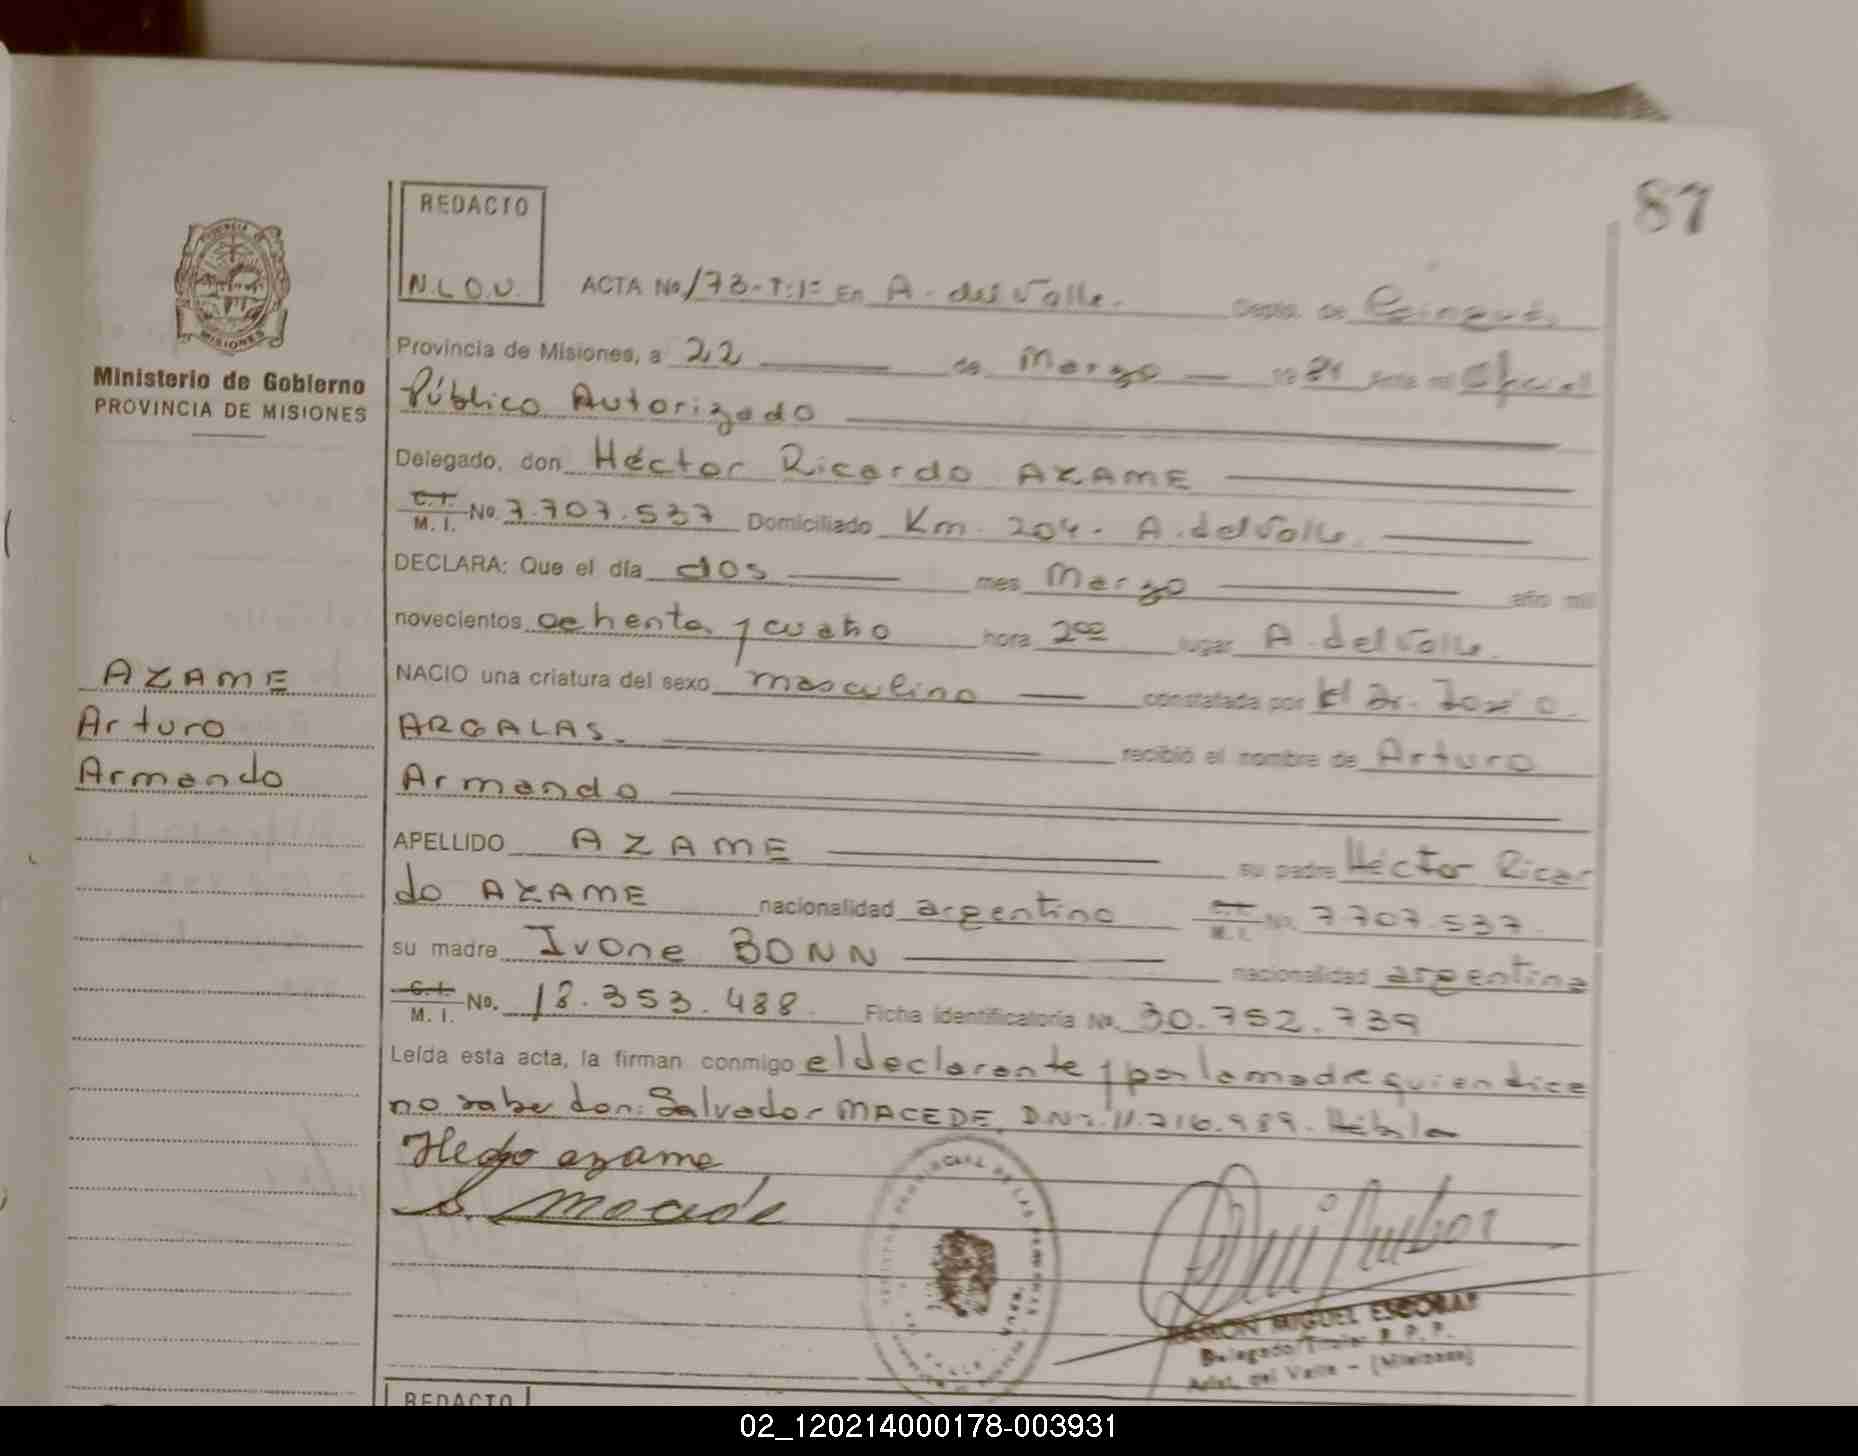 87
REDACTO
N.L.O.U.
ACTA No 173-T:1= En A. del Valle. Depto. de Cainguás
Ministerio de Gobierno
PROVINCIA DE MISIONES
Provincia de Misiones, a 22 de Marzo 1984 ante mi Oficial
Público Autorizado
Delegado, don Héctor Ricardo AZAME
C.I. M. I. No. 7.707.537 Domiciliado Km. 204. A. del Valle.
DECLARA: Que el día dos mes Marzo año mil
novecientos ochenta y cuatro hora 2:00 lugar A. del Valle.
NACIO una criatura del sexo masculino constatada por el Dr. José O.
ARGALAS. recibió el nombre de Arturo
Armando
AZAME
Arturo
Armando
APELLIDO AZAME su padre Héctor Ricar
do AZAME nacionalidad argentino C.I. M. I. No. 7.707.537.
su madre Ivone BONN nacionalidad argentina
C.I. M. I. No. 18.353.488. Ficha identificatoria No. 30.752.739
Leída esta acta, la firman conmigo el declarante y por la madre quien dice
no saber don: Salvador MACEDE, D.N: 11.716.989.
azame
S. Macede
RAMON MIGUEL ESCOBAR
Delegado Titular R. P. P.
Arist. del Valle - (Misiones)
REDACTO
02_120214000178-003931